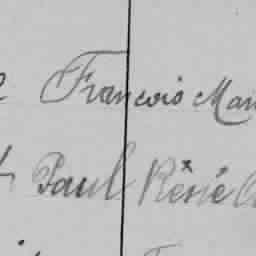 François Mar
Paul René